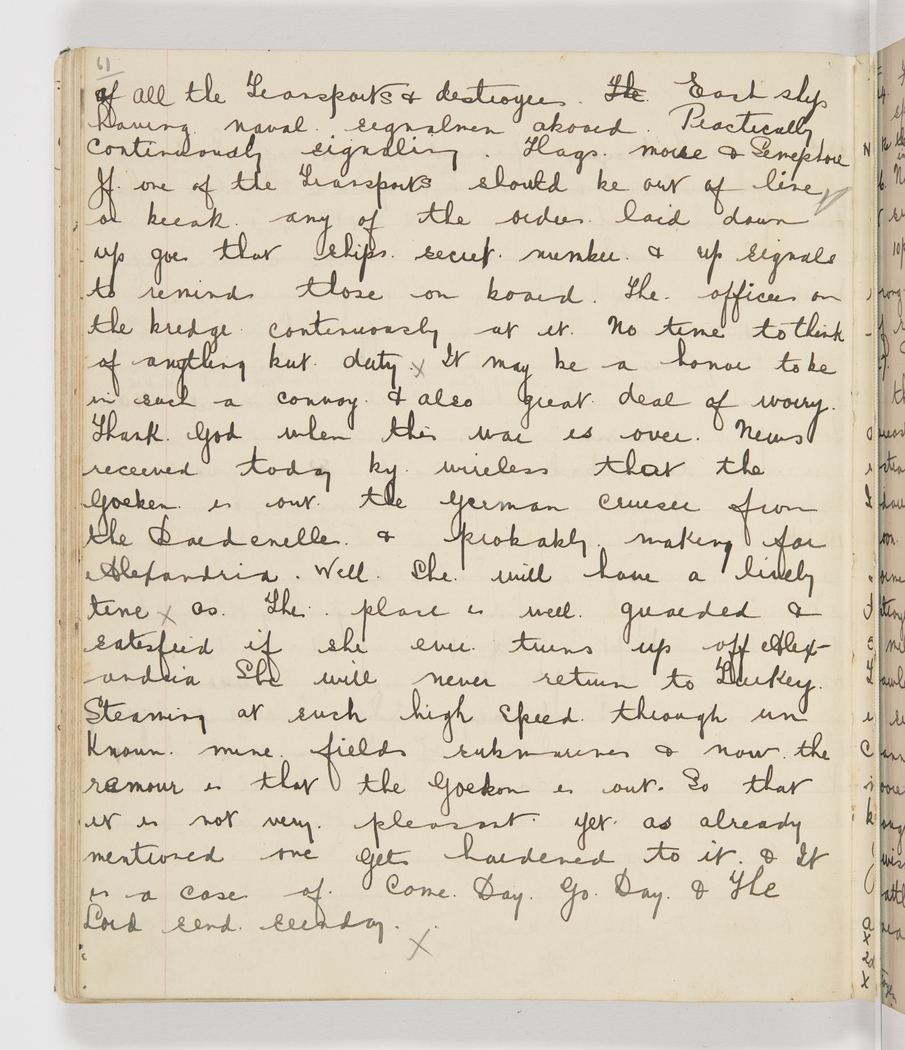 61
of all the Transports & destroyers. The Each ship
having naval signalmen aboard. Practically
continuously signaling. Flags. morse & Semephore
If one of the Transports should be out of line
or break any of the orders laid down
up goes that ships. secret. number. & up signals
to reminds those on board. The officers on
the bredge continuously at it. No time to think
of anything but duty x It may be a honor to be
in such a convoy. & also great deal of worry.
Thank God when this war is over. News
received today by wireless that the
Goeben is out. the German cruiser from
the Dardenelles. & probably making for
Alexandria. Well. She. will have a lively
time x as. The. place is well guarded &
satesfeid if she ever turns up off Alex-
andria She will never return to Turkey.
Steaming at such high speed. through un
known. mine. fields submarines & now the
ramour is that the Goebon is out. So that
it is not very pleasant yet as already
mentioned one gets hardened to it. & It
is a case of. Come. Day. Go. Day. & The
Lord send. sunday.
x